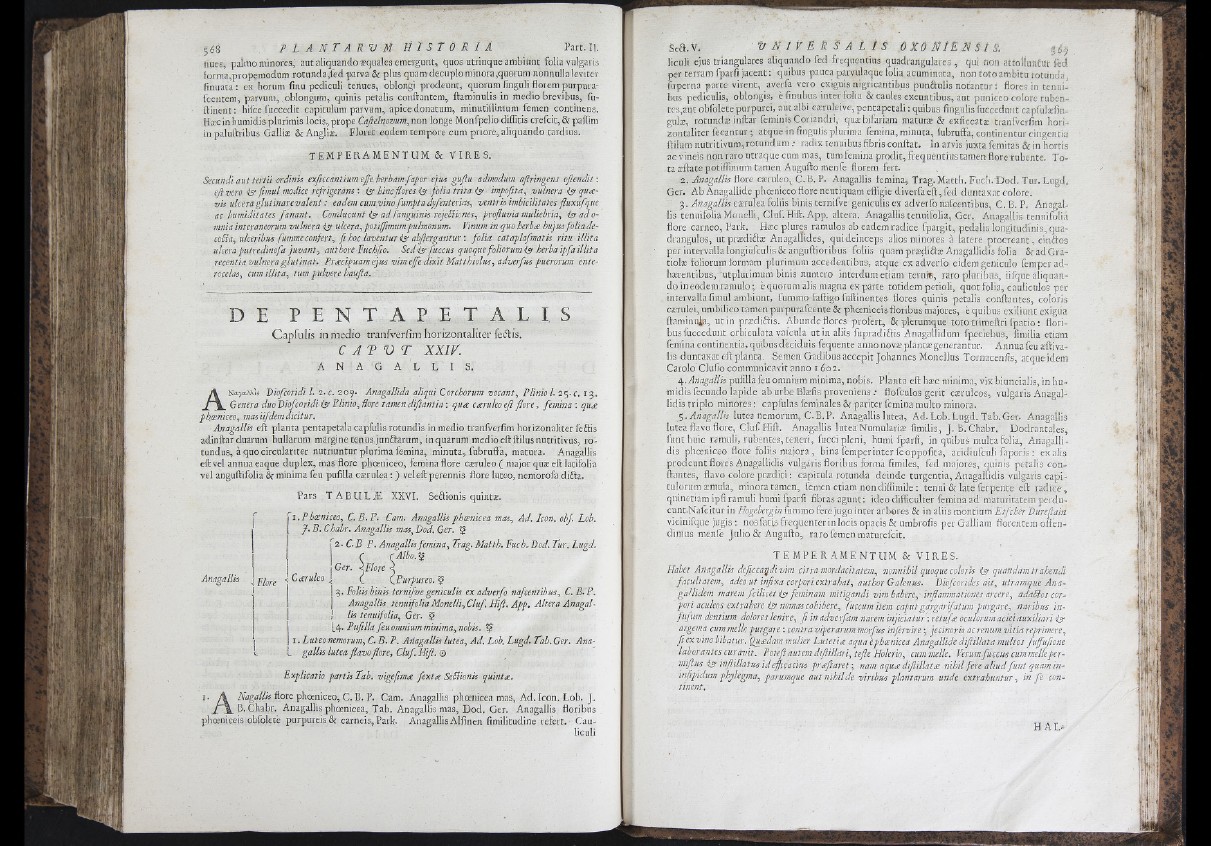 568 PLANTARUM HISTORIA Part. II.
nues, palmo minores, aut aliquando æquales emergunt, quos utrinque ambiunt folia vulgaris
forma, propemodum rotunda, sed parva & plus quam decuplo minora, quorum nonnulla leviter
sinuata: ex horum sinu pediculi tenues, oblongi prodeunt, quorum singuli florem purpura-
scentem, parvum, oblongum, quinis petalis constantem, staminulis in medio brevibus, su-
stinent: hisce succedit capitulum parvum, apice donatum, minutissimum semen continens.
Hæc in humidis plurimis locis, prope Castelnovum, non longe Monspelio dissitis crescit, & passim
in palustribus Galliæ & Angliæ. Floret eodem tempore cum priore, aliquando tardius.
TEMPERAMENTUM & VIRES.
Secundi aut tertii ordinis exsiccantium esse herbam sapor ejus gustu admodum astringens ostendit:
est vero & simul modice refrigerans: & hinc flores & folia trita & imposita, vulnera & quæ-
vis ulcera glutinare valent: eadem cum vino sumpta dysenterias, ventris imbecillitates fluxusque
ac humiditates sanant. Conducunt & ad sanguinis rejectiones, profluvia muliebria, & ad o-
mnia interaneorum vulnera & ulcera, potissimum pulmonum. Vinum in quo herbæ hujus folia de-
cocta, ulceribus summe confert, si hoc laventur & abstergantur: folia cataplasmatis ritu illita
ulcera putredinosa juvant, authore Fuchsio. Sed & succus quoque foliorum & herba ipsa illita
recentia vulnera glutinat. Præcipuam ejus vim esse dixit Matthiolus, adversus puerorum ente-
rocelas, cum illita, tum pulvere hausta.
DE PENTAPETALIS
Capsulis in medio transversim horizontaliter sectis.
CAPUT XXIV.
ANAGALLIS.
Dioscoridi l. 2. c. 209. Anagallida aliqui Corchorum vocant, Plinio l. 25. c. 13.
Genera duo Dioscoridi & Plinio, flore tamen distantia: quæ cæruleo est flore, femina: quæ
phœniceo, mas iisdem dicitur.
Anagallis est planta pentapetala capsulis rotundis in medio transversim horizonaliter sectis
ad instar duarum bullarum margine tenus junctarum, in quarum medio est stilus nutritivus, ro-
tundus, à quo circulariter nutriuntur plurima semina, minuta, subrussa, matura. Anagallis
est vel annua eaque duplex, mas flore phœniceo, femina flore cæruleo ( major quæ est latifolia
vel angustifolia & minima seu pusilla cærulea: ) vel est perennis flore luteo, nemorosa dicta.
Pars TABULÆ XXVI. Sectionis quintæ.
Anagallis Flore
1. Phœniceo, C. B. P. Cam. Anagallis phœnicea mas, Ad. Icon. obs. Lob.
J. B. Chabr. Anagallis mas, Dod. Ger.
Cæruleo
2. C. B. P. Anagallis femina, Trag. Matth. Fuch. Dod. Tur. Lugd.
Ger. Flore Albo.
Purpureo.
3. Foliis binis ternisve geniculis ex adverso nascentibus, C. B. P.
Anagallis tenuifolia Monelli, Clus. Hist. App. Altera Anagal-
lis tenuifolia, Ger.
4. Pusilla seu omnium minima, nobis.
1. Luteo nemorum, C. B. P. Anagallis lutea, Ad. Lob. Lugd. Tab. Ger. Ana-
gallis lutea flavo flore, Clus. Hist.
Explicatio partis Tab. vigesimæ sextæ Sectionis quintæ.
1. ANagallis flore phœniceo, C. B. P. Cam. Anagallis phœnicea mas, Ad. Icon. Lob. J.
B. Chabr. Anagallis phœnicea, Tab. Anagallis mas, Dod. Ger. Anagallis floribus
phœniceis obsolete purpureis & carneis, Park. Anagallis Alsinen similitudine refert. Cau-
liculi
Sect. V. UNIVERSALIS OXONIENSIS. 569
liculi ejus triangulares aliquando sed frequentius quadrangulares, qui non attolluntur sed
per terram sparsi jacent: quibus pauca parvulaque folia acuminata, non toto ambitu rotunda,
superna parte virent, aversa vero exiguis nigricantibus punctulis notantur: flores in tenui-
bus pediculis, oblongis, è sinubus inter folia & caules exeuntibus, aut puniceo colore ruben-
tes, aut obsolete purpurei, aut albi cæruleive, pentapetali: quibus singulis succedunt capsulæ sin-
gulæ, rotundæ instar seminis Coriandri, quæ bifariam maturæ & exsiccatæ transversim hori-
zontaliter secantur; atque in singulis plurima semina, minuta, subrussa, continentur cingentia
stilum nutritivum, rotundum: radix tenuibus fibris constat. In arvis juxta semitas & in hortis
ac vineis non raro utraque cum mas, tum femina prodit, frequentius tamen flore rubente. To-
ta æstate potissimum tamen Augusto mense florem fert.
2. Anagallis flore cæruleo, C. B. P. Anagallis femina, Trag. Matth. Fuch. Dod. Tur. Lugd.
Ger. Ab Anagallide phœniceo flore neutiquam effigie diversa est, sed duntaxat colore.
3. Anagallis cærulea foliis binis ternisve geniculis ex adverso nascentibus, C. B. P. Anagal-
lis tenuifolia Monelli, Clus. Hist. App. altera. Anagallis tenuifolia, Ger. Anagallis tenuifolia
flore carneo, Park. Hæc plures ramulos ab eadem radice spargit, pedalis longitudinis, qua-
drangulos, ut prædictæ Anagallides, qui deinceps alios minores à latere procreant, cinctos
per intervalla longiusculis & angustioribus foliis quam prædictæ Anagallidis folia & ad Gra-
tiolæ foliorum formam plurimum accedentibus, atque ex adverso eidem geniculo semper ad-
hærentibus, ut plurimum binis numero interdum etiam ternis, raro pluribus, iisque aliquan-
do in eodem ramulo; è quorum alis magna ex parte totidem petioli, quot folia, cauliculos per
intervalla simul ambiunt, summo fastigo sustinentes flores quinis petalis constantes, coloris
cærulei, umbilico tamen purpurascente & phœniceis floribus majores, è quibus exiliunt exigua
staminula, ut in prædictis. Abunde flores profert, & plerumque toto trimestri spatio: flori-
bus succedunt orbiculata vascula ut in aliis supradictis Anagallidum speciebus, similia etiam
semina continentia, quibus deciduis sequente anno novæ plantæ generantur. Annua seu æstiva-
lis duntaxat est planta. Semen Gadibus accepit Johannes Monellus Tornacensis, atque idem
Carolo Clusio communicavit anno 1602.
4. Anagallis pusilla seu omnium minima, nobis. Planta est hæc minima, vix biuncialis, in hu-
midis secundo lapide ab urbe Blæsis proveniens: flosculos gerit cæruleos, vulgaris Anagal-
lidis triplo minores: capsulas seminales & pariter semina multo minora.
5. Anagallis lutea nemorum, C. B. P. Anagallis lutea, Ad. Lob. Lugd. Tab. Ger. Anagallis
lutea flavo flore, Clus. Hist. Anagallis lutea Numulariæ similis, J. B. Chabr. Dodrantales,
sunt huic ramuli, rubentes, teneri, succi pleni, humi sparsi, in quibus multa folia, Anagalli-
dis phœniceo flore foliis majora, bina semper inter se opposita, acidiusculi saporis: ex alis
prodeunt flores Anagallidis vulgaris floribus forma similes, sed majores, quinis petalis con-
stantes, flavo colore præditi: capitula rotunda deinde turgentia, Anagallidis vulgaris capi-
tulorum æmula, minora tamen, semen etiam non dissimile: tenui & late serpente est radice,
quinetiam ipsi ramuli humi sparsi fibras agunt: ideo difficulter semina ad maturitatem perdu-
cunt. Nascitur in Hogebergin summo fere jugo inter arbores & in aliis montium Etscher Durestain
vicinisque jugis: nos satis frequenter in locis opacis & umbrosis per Galliam florentem offen-
dimus mense Julio & Augusto, raro semen maturescit.
TEMPERAMENTUM & VIRES.
Habet Anagallis desiccandi vim citra mordacitatem, nonnihil quoque caloris & quandam trahendi
facultatem, adeo ut infixa corpori extrahat, author Galenus. Dioscorides ait, utramque Ana-
gallidem marem scilicet & feminam mitigandi vim habere, inflammationes arcere, adactos cor-
pori aculeos extrahere & nomas cohibere, succum item caput gargarisatum purgare, naribus in-
fusum dentium dolores lenire, si in adversam narem injiciatur: retusæ oculorum aciei auxiliari &
argema cum melle purgare: contra viperarum morsus inservire; jecinoris ac renum vitia reprimere,
si ex vino bibatur. Quædam mulier Lutetiæ aqua è phœnicea Anagallide distillata multos suffusione
laborantes curavit. Potest autem distillari, teste Holerio, cum melle. Verum succus cum melle per-
mistus & instillatus id efficacius præstaret; nam aquæ distillatæ nihil fere aliud sunt quam in-
insipidum phlegma, parumque aut nihil de viribus plantarum unde extrahuntur, in se con-
tinent.
HAL-